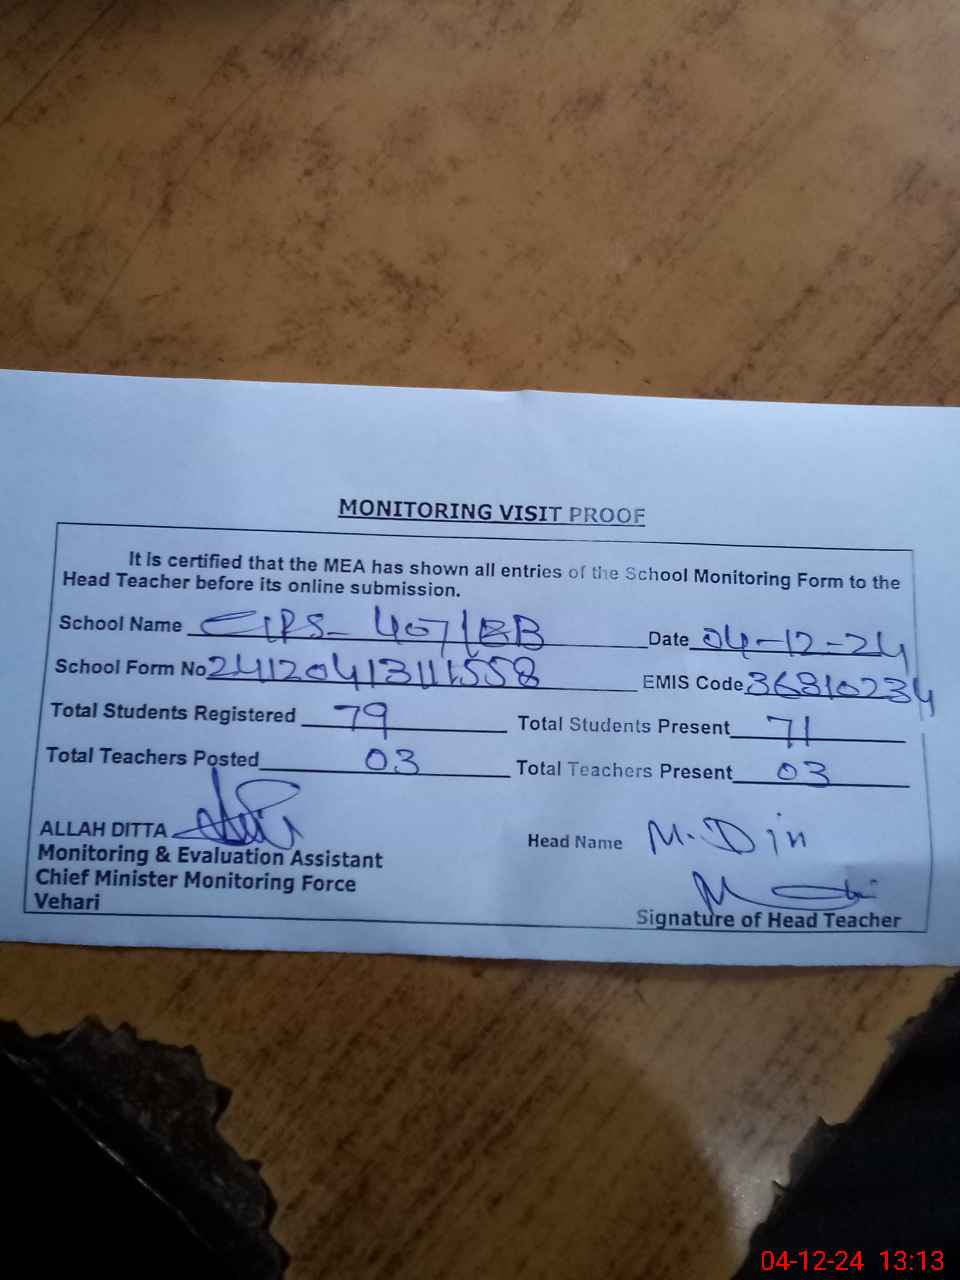 MONITORING VISIT PROOF
It is certified that the MEA has shown all entries of the School Monitoring Form to the
Head Teacher before its online submission.
School Name GPS- 407/EB Date 04-12-24
School Form No 241204131111558 EMIS Code 36810234
Total Students Registered 79 Total Students Present 71
Total Teachers Posted 03 Total Teachers Present 03
ALLAH DITTA
Monitoring & Evaluation Assistant
Chief Minister Monitoring Force
Vehari
Head Name M. Din
Signature of Head Teacher
04-12-24 13:13